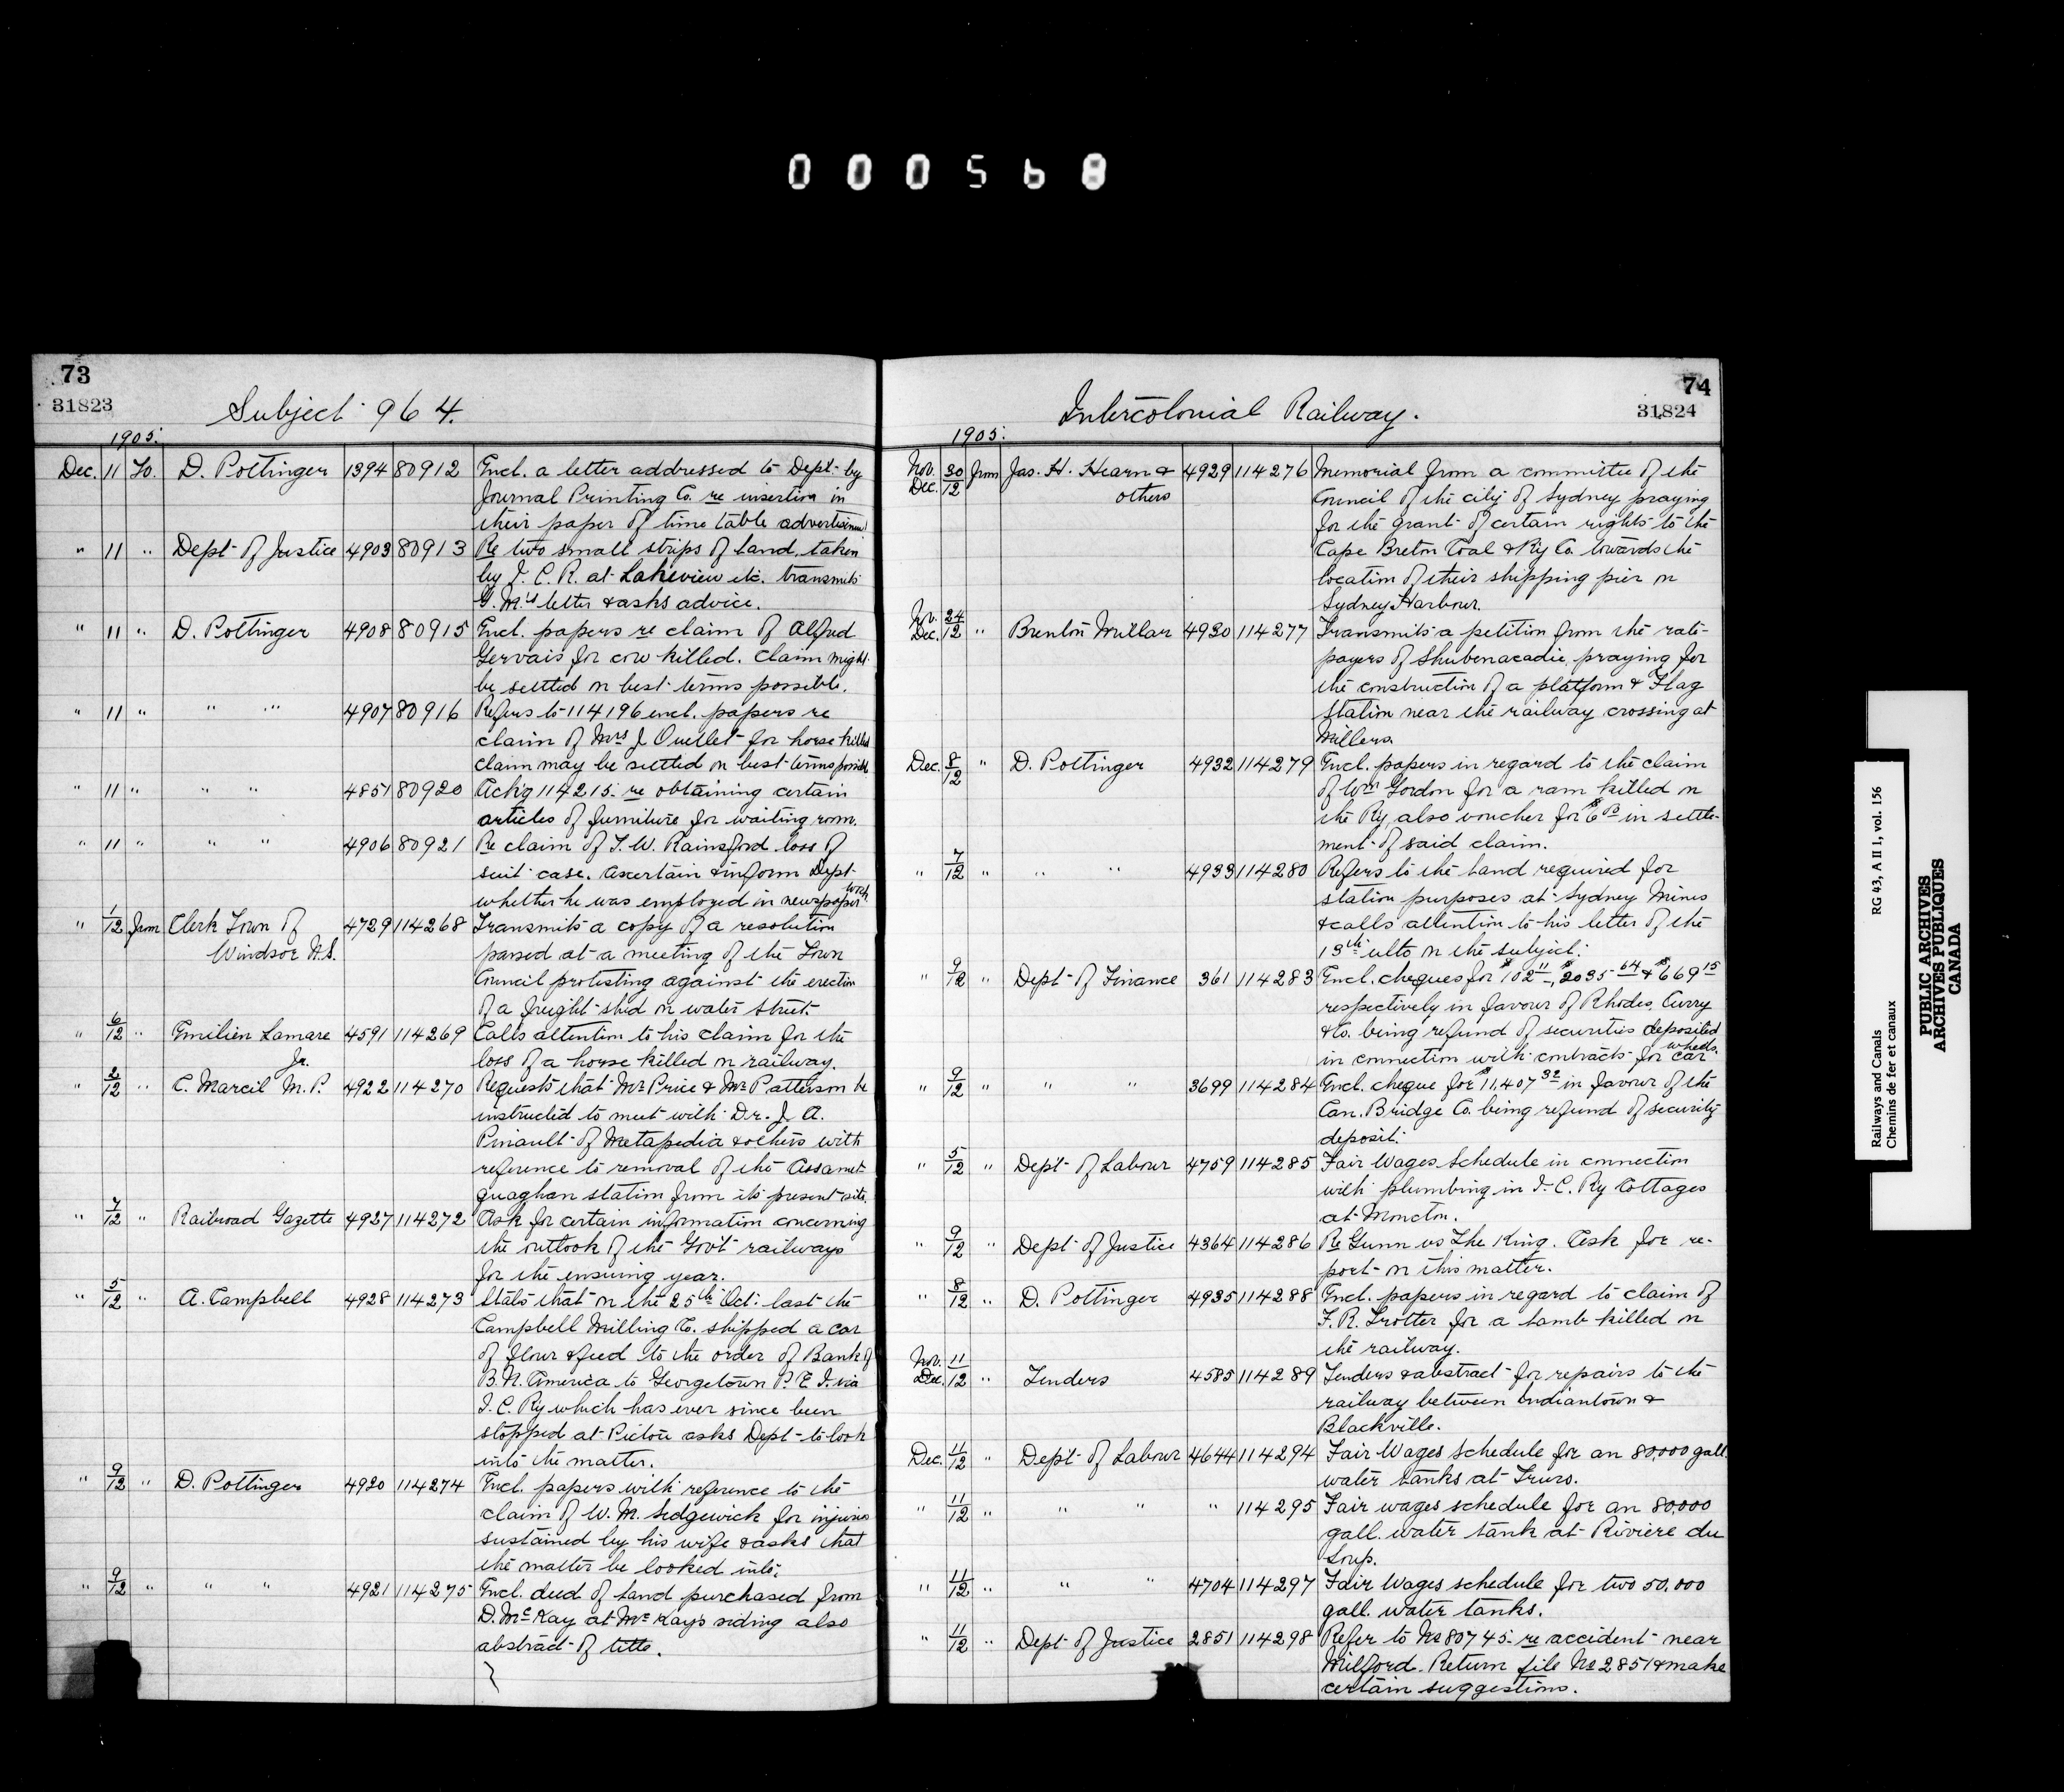 000568
73
31823
Subject 964.
1905.
Dec. 11 To. D. Pottinger 1394 80912 Encl. a letter addressed to Dept. by
Journal Printing Co. re insertion in
their paper of time table advertisement
" 11 " Dept of Justice 4903 80913 Re two small strips of land, taken
by I. C. R. at Lakeview etc. transmits
G. M's letter & asks advice.
" 11 " D. Pottinger 4908 80915 Encl. papers re claim of Alfred
Gervais for cow killed. Claim might
be settled on best terms possible.
" 11 " " " 4907 80916 Refers to 114196 encl. papers re
claim of Mrs J Ouellet for horse killed
claim may be settled on best terms possible
" 11 " " " 4851 80920 Ackg 114215 re obtaining certain
articles of furniture for waiting room.
" 11 " " " 4906 80921 Re claim of T. W. Rainsford loss of
suit case. Ascertain & inform Dept
whether he was employed in newspaper work.
" 1/12 from Clerk Town of 4729 114268 Transmits a copy of a resolution
Windsor N.S. passed at a meeting of the Town
Council protesting against the erection
of a freight shed on water street.
" 6/12 " Emilien Lamare 4591 114269 Calls attention to his claim for the
Jr. loss of a horse killed on railway.
" 2/12 " C. Marcil M. P. 4922 114270 Requests that Mr Price & Mr Patterson be
instructed to meet with Dr. J. A.
Pinault of Metapedia & others with
reference to removal of the Assamet-
quaghan station from its present site.
" 7/12 " Railroad Gazette 4927 114272 Ask for certain information concerning
the outlook of the Gov't railways
for the ensuing year.
" 5/12 " A. Campbell 4928 114273 States that on the 25th Oct. last the
Campbell Milling Co. shipped a car
of flour & feed to the order of Bank of
B. N. America to Georgetown P. E. I. via
I. C. Ry which has ever since been
stopped at Pictou asks Dept to look
into the matter.
" 9/12 " D. Pottinger 4920 114274 Encl. papers with reference to the
claim of W. M. Sedgewick for injuries
sustained by his wife & asks that
the matter be looked into.
" 9/12 " " " 4921 114275 Encl. deed of land purchased from
D. McKay at McKays siding also
abstract of title.
74
31824
Intercolonial Railway.
1905.
Nov. 30 from Jas. H. Hearn & 4929 114276 Memorial from a committee of the
Dec. 12 others Council of the city of Sydney praying
for the grant of certain rights to the
Cape Breton Coal & Ry Co. towards the
location of their shipping pier on
Sydney Harbour.
Nov. 24 Dec. 12 " Brenton Millar 4930 114277 Transmits a petition from the rate-
payers of Shubenacadie, praying for
the construction of a platform & Flag
station near the railway crossing at
Millers.
Dec. 8/12 " D. Pottinger 4932 114279 Encl. papers in regard to the claim
of Wm Gordon for a ram killed on
the Ry, also voucher for $6 in settle-
ment of said claim.
" 7/12 " " " 4933 114280 Refers to the land required for
station purposes at Sydney Mines
& calls attention to his letter of the
13th ulto on the subject.
" 9/12 " Dept of Finance 361 114283 Encl. cheques for $102 11, $2035 64 & $669 15
respectively in favour of Rhodes, Curry
& Co. being refund of securities deposited
in connection with contracts for car wheels.
" 9/12 " " " 3699 114284 Encl. cheque for $11,407 32 in favour of the
Can. Bridge Co. being refund of security
deposit.
" 5/12 " Dept of Labour 4759 114285 Fair Wages Schedule in connection
with plumbing in I. C. Ry Cottages
at Moncton.
" 9/12 " Dept of Justice 4364 114286 Re Gunn vs The King. Ask for re-
port on this matter.
" 8/12 " D. Pottinger 4935 114288 Encl. papers in regard to claim of
F. R. Trotter for a lamb killed on
the railway.
Nov. 11 Dec. 12 " Tenders 4585 114289 Tenders & abstract for repairs to the
railway between Indiantown &
Blackville.
Dec. 11/12 " Dept of Labour 4644 114294 Fair Wages schedule for an 80,000 gall.
water tanks at Truro.
" 11/12 " " " " 114295 Fair wages schedule for an 80,000
gall. water tank at Riviere du
Loup.
" 11/12 " " " 4704 114297 Fair Wages schedule for two 50,000
gall. water tanks.
" 11/12 " Dept of Justice 2851 114298 Refer to No 80745 re accident near
Milford. Return file No 2851 & make
certain suggestions.
Railways and Canals RG 43, A II 1, vol. 156
Chemins de fer et canaux
PUBLIC ARCHIVES
ARCHIVES PUBLIQUES
CANADA